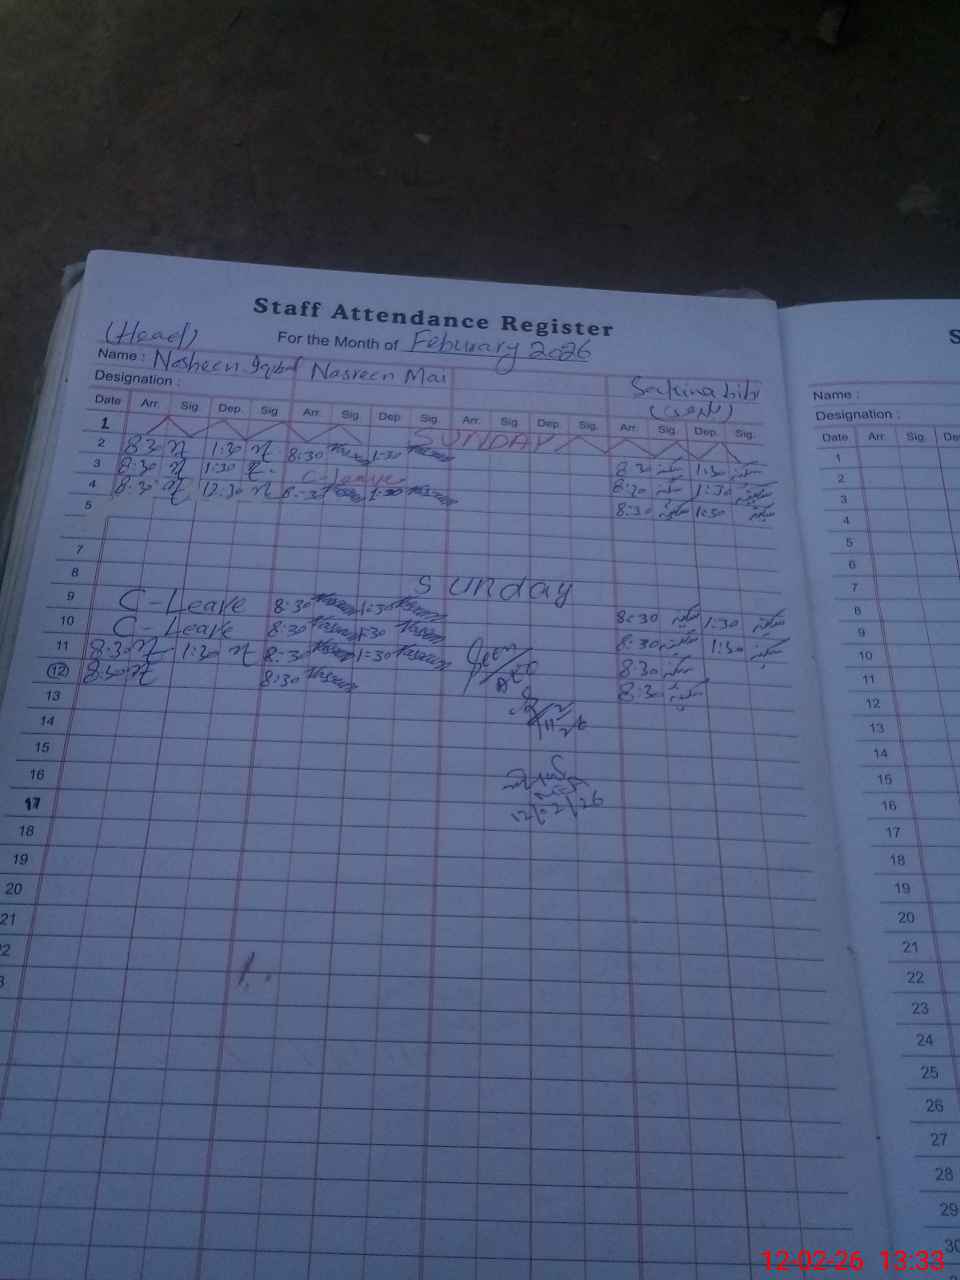 Staff Attendance Register
(Head) For the Month of Feburary 2026
Name : Nosheen Iqbal Nasreen Mai Sakina bibi
Designation :
Date Arr. Sig. Dep. Sig. Arr. Sig. Dep. Sig. Arr. Sig. Dep. Sig. Arr. Sig. Dep. Sig.
1 SUNDAY
2 8:30 1:30 8:30 1:30 8:30 سکینہ 1:30 سکینہ
3 8:30 1:30 C-Leave 8:30 سکینہ 1:30 سکینہ
4 8:30 12:30 8:30 1:30 8:30 سکینہ 1:30 سکینہ
5
7
8 SUNDAY
9 C-Leave 8:30 1:30 8:30 سکینہ 1:30 سکینہ
10 C-Leave 8:30 1:30 8:30 سکینہ 1:30 سکینہ
11 8:30 1:30 8:30 1:30 Seen 8:30 سکینہ
12 8:30 8:30 8:30 سکینہ
13
14
15
16
17 12/2/26
18
19
20
21
22
S
Name :
Designation :
Date Arr. Sig. De
1
2
3
4
5
6
7
8
9
10
11
12
13
14
15
16
17
18
19
20
21
22
23
24
25
26
27
28
29
30
12-02-26 13:33